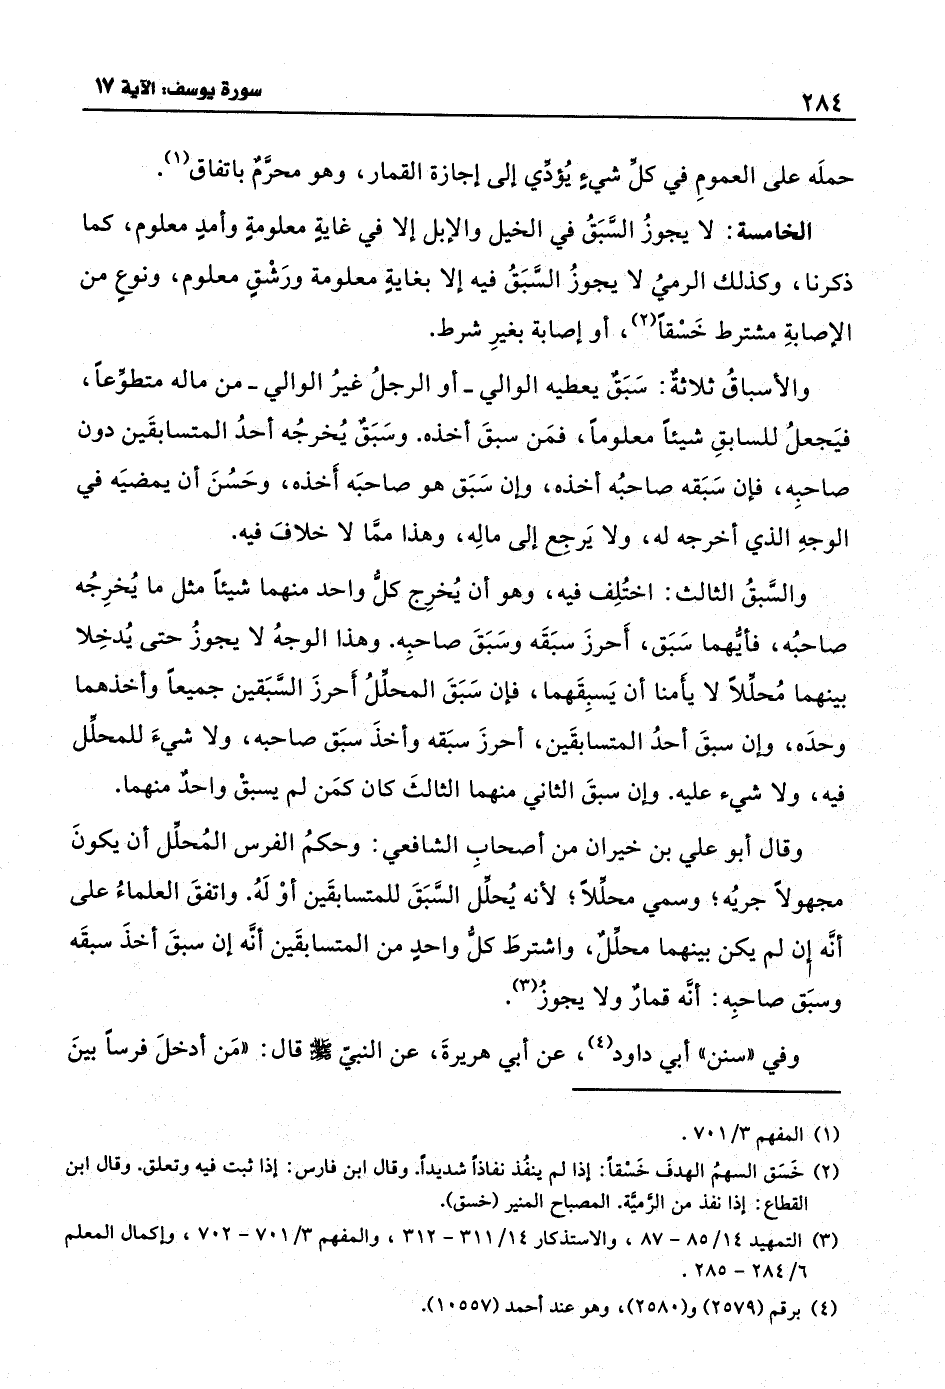 سورة يوسف: الآية ١٧
٢٨٤
حملَه على العمومِ في كلِّ شيءٍ يُؤدِّي إلى إجازة القمار، وهو محرَّمٌ باتفاق(١).
الخامسة: لا يجوزُ السَّبَقُ في الخيل والإبل إلا في غايةٍ معلومةٍ وأمدٍ معلوم، كما
ذكرنا، وكذلك الرميُ لا يجوزُ السَّبَقُ فيه إلا بغايةٍ معلومة ورَشْقٍ معلوم، ونوعٍ من
الإصابةِ مشترط خَسْقاً(٢)، أو إصابة بغيرِ شرط.
والأسباقُ ثلاثةٌ: سَبَقٌ يعطيه الوالي ـ أو الرجلُ غيرُ الوالي ـ من ماله متطوِّعاً،
فيَجعلُ للسابقِ شيئاً معلوماً، فمَن سبقَ أخذه. وسَبَقٌ يُخرجُه أحدُ المتسابقَين دون
صاحبِه، فإن سَبَقه صاحبُه أخذه، وإن سَبَق هو صاحبَه أَخذه، وحَسُنَ أن يمضيَه في
الوجهِ الذي أخرجه له، ولا يَرجِع إلى مالِه، وهذا ممَّا لا خلافَ فيه.
والسَّبقُ الثالث: اختُلِف فيه، وهو أن يُخرِج كلُّ واحد منهما شيئاً مثل ما يُخرِجُه
صاحبُه، فأيُّهما سَبَق، أَحرزَ سبَقَه وسَبَقَ صاحبِه. وهذا الوجهُ لا يجوزُ حتى يُدخِلا
بينهما مُحلِّلاً لا يأمنا أن يَسبِقَهما، فإن سَبَقَ المحلِّلُ أَحرزَ السَّبَقين جميعاً وأخذهما
وحدَه، وإن سبقَ أحدُ المتسابقَين، أحرزَ سبَقه وأخذَ سبَق صاحبه، ولا شيءَ للمحلِّل
فيه، ولا شيء عليه. وإن سبقَ الثاني منهما الثالثَ كان كمَن لم يسبقْ واحدٌ منهما.
وقال أبو علي بن خيران من أصحابِ الشافعي: وحكمُ الفرس المُحلِّل أن يكونَ
مجهولاً جريُه؛ وسمي محلِّلاً؛ لأنه يُحلِّل السَّبَقَ للمتسابقَين أوْ لَهُ. واتفقَ العلماءُ على
أنَّه إن لم يكن بينهما محلِّلٌ، واشترطَ كلُّ واحدٍ من المتسابقَين أنَّه إن سبقَ أخذَ سبقَه
وسبَق صاحبِه: أنَّه قمارٌ ولا يجوزُ(٣).
وفي «سنن» أبي داود(٤)، عن أبي هريرةَ، عن النبيّ ﷺ قال: «مَن أدخلَ فرساً بينَ
(١) المفهم ٣/ ٧٠١ .
(٢) خَسَق السهمُ الهدفَ خَسْقاً: إذا لم ينفُذ نفاذاً شديداً. وقال ابن فارس: إذا ثبت فيه وتعلق. وقال ابن
القطاع: إذا نفذ من الرَّميَّة. المصباح المنير (خسق).
(٣) التمهيد ١٤/ ٨٥ – ٨٧ ، والاستذكار ١٤/ ٣١١ – ٣١٢ ، والمفهم ٣/ ٧٠١ – ٧٠٢ ، وإكمال المعلم
٦/ ٢٨٤ – ٢٨٥ .
(٤) برقم (٢٥٧٩) و(٢٥٨٠)، وهو عند أحمد (١٠٥٥٧).